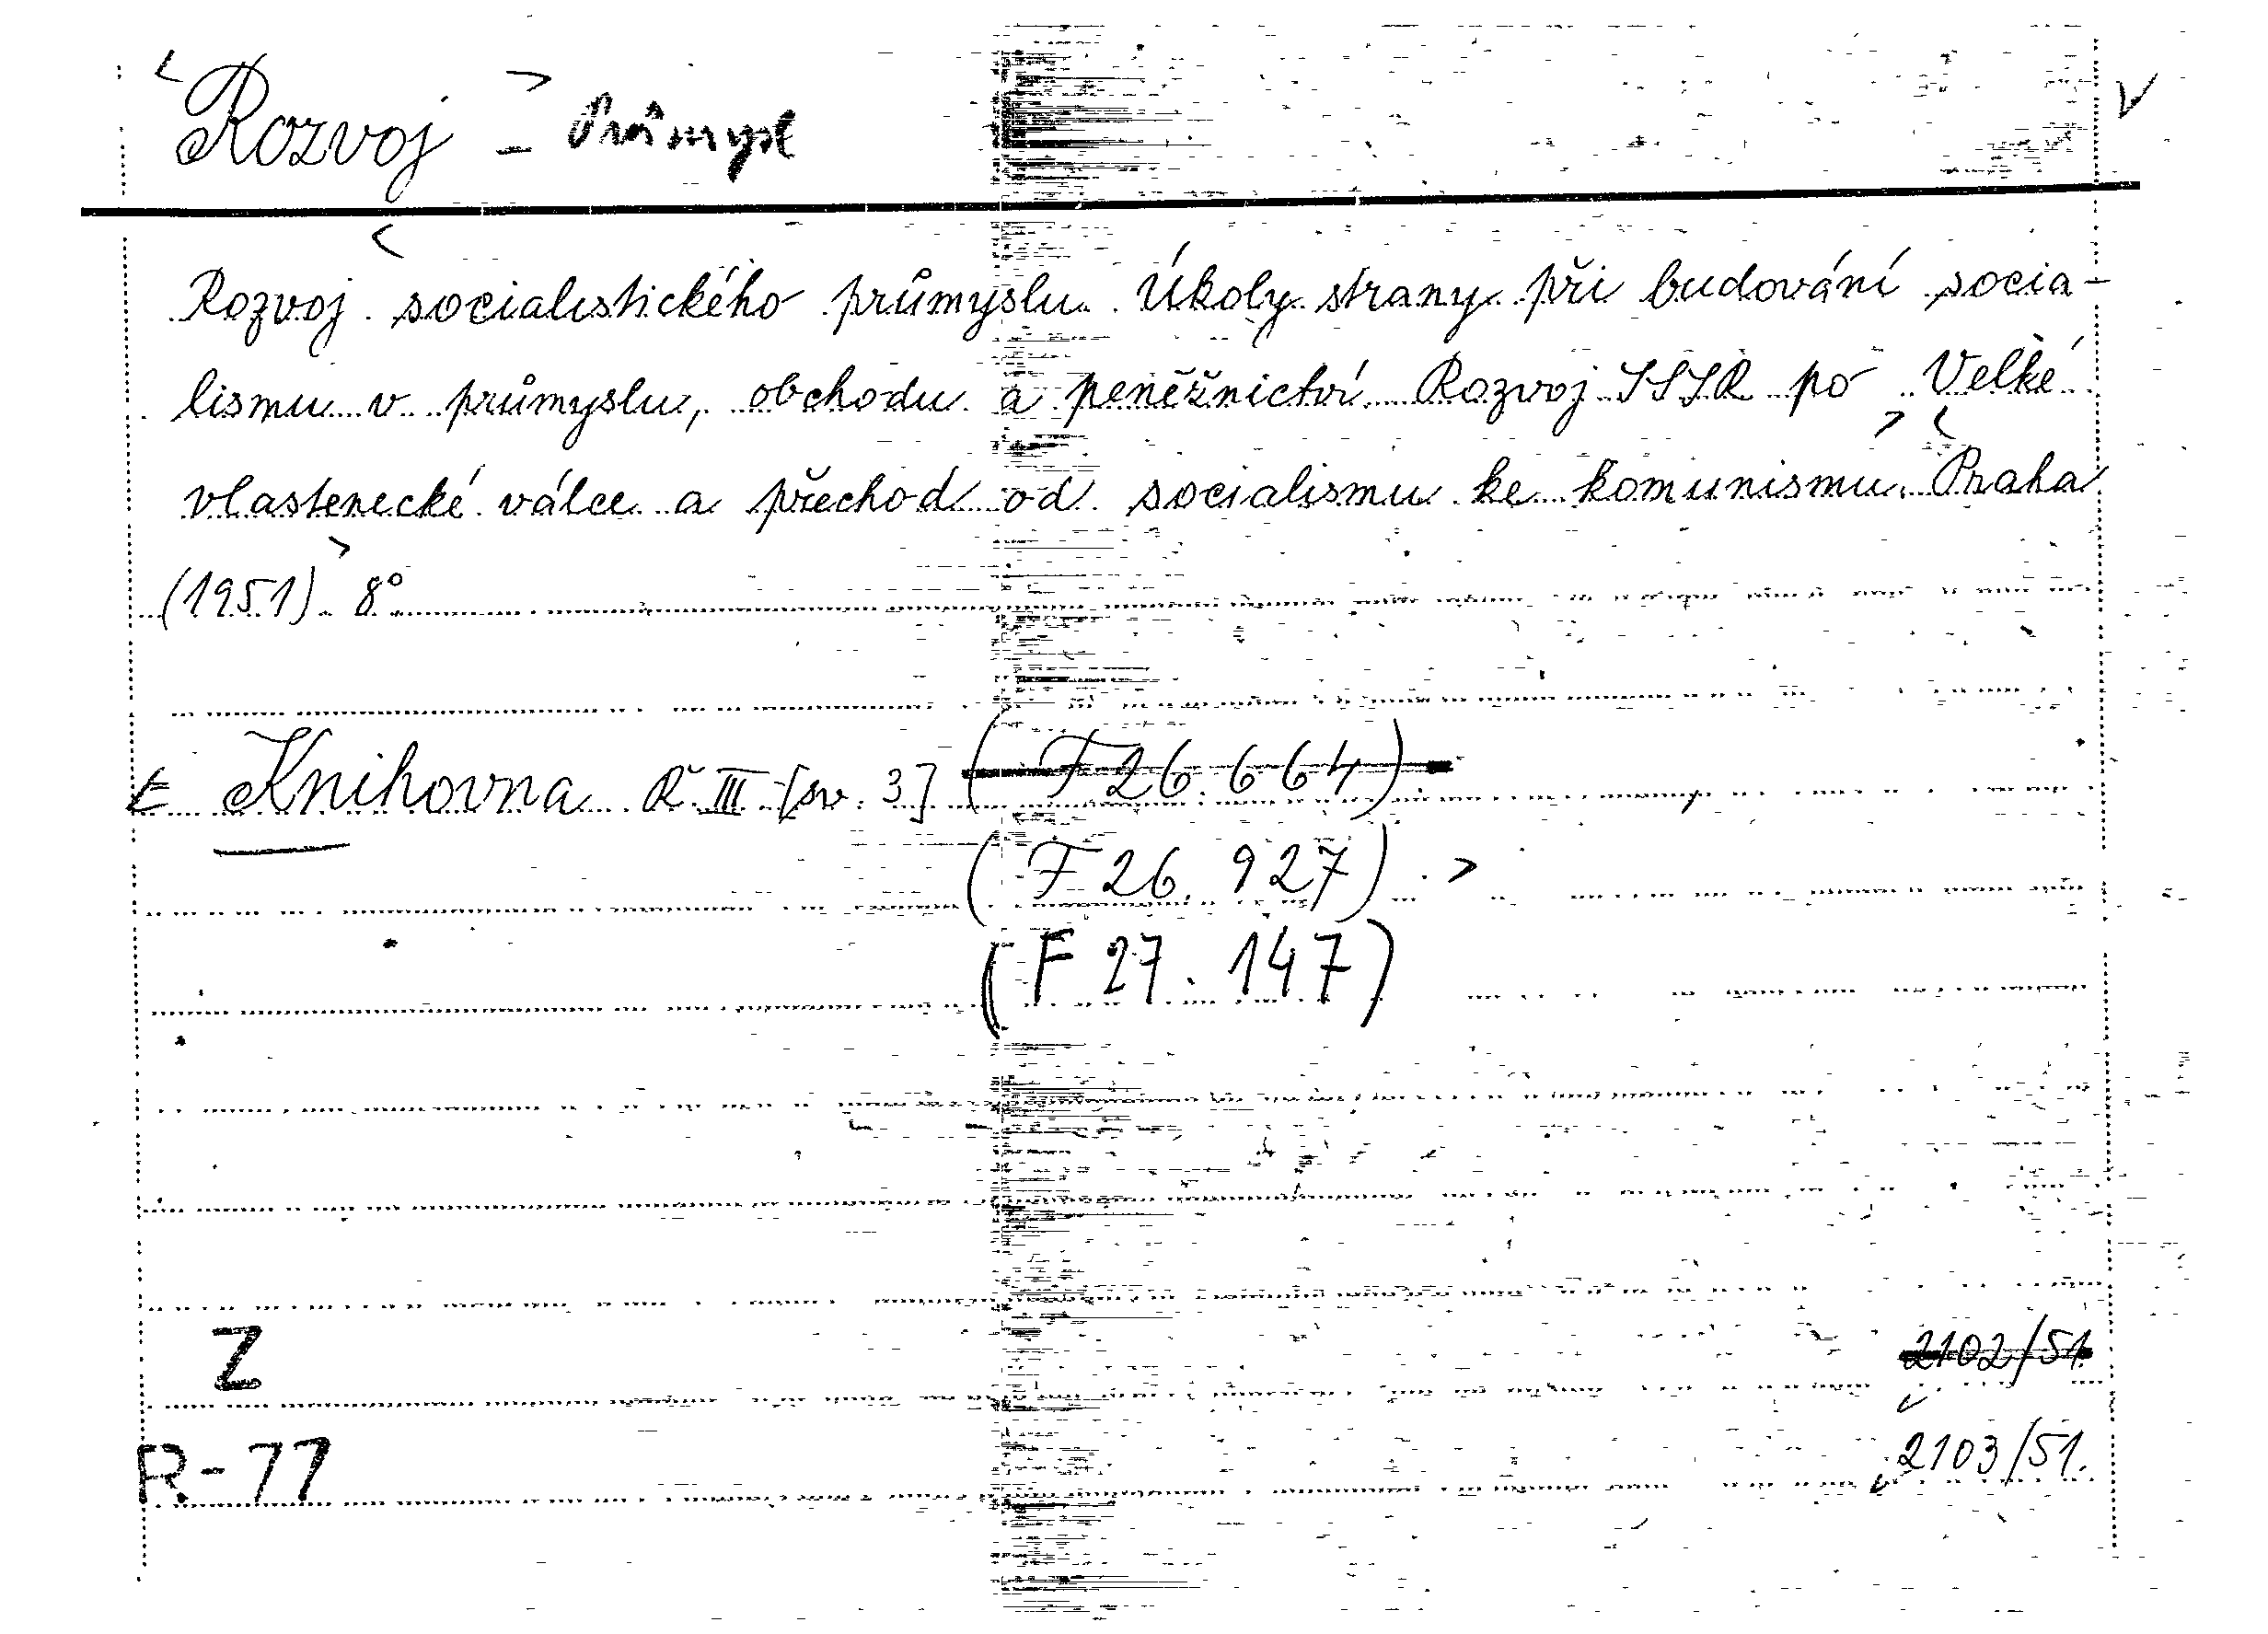 Rozvoj - Průmysl
Rozvoj socialistického průmyslu. Úkoly strany při budování socia-
lismu v průmyslu, obchodu a peněžnictví. Rozvoj SSSR po Velké
vlastenecké válce a přechod od socialismu ke komunismu. Praha
(1951) 8°
Knihovna Ř. III [sv. 3] (F 26.664)
(F 26.927)
(F 27.147)
Z
2102/51.
R-77
2103/51.